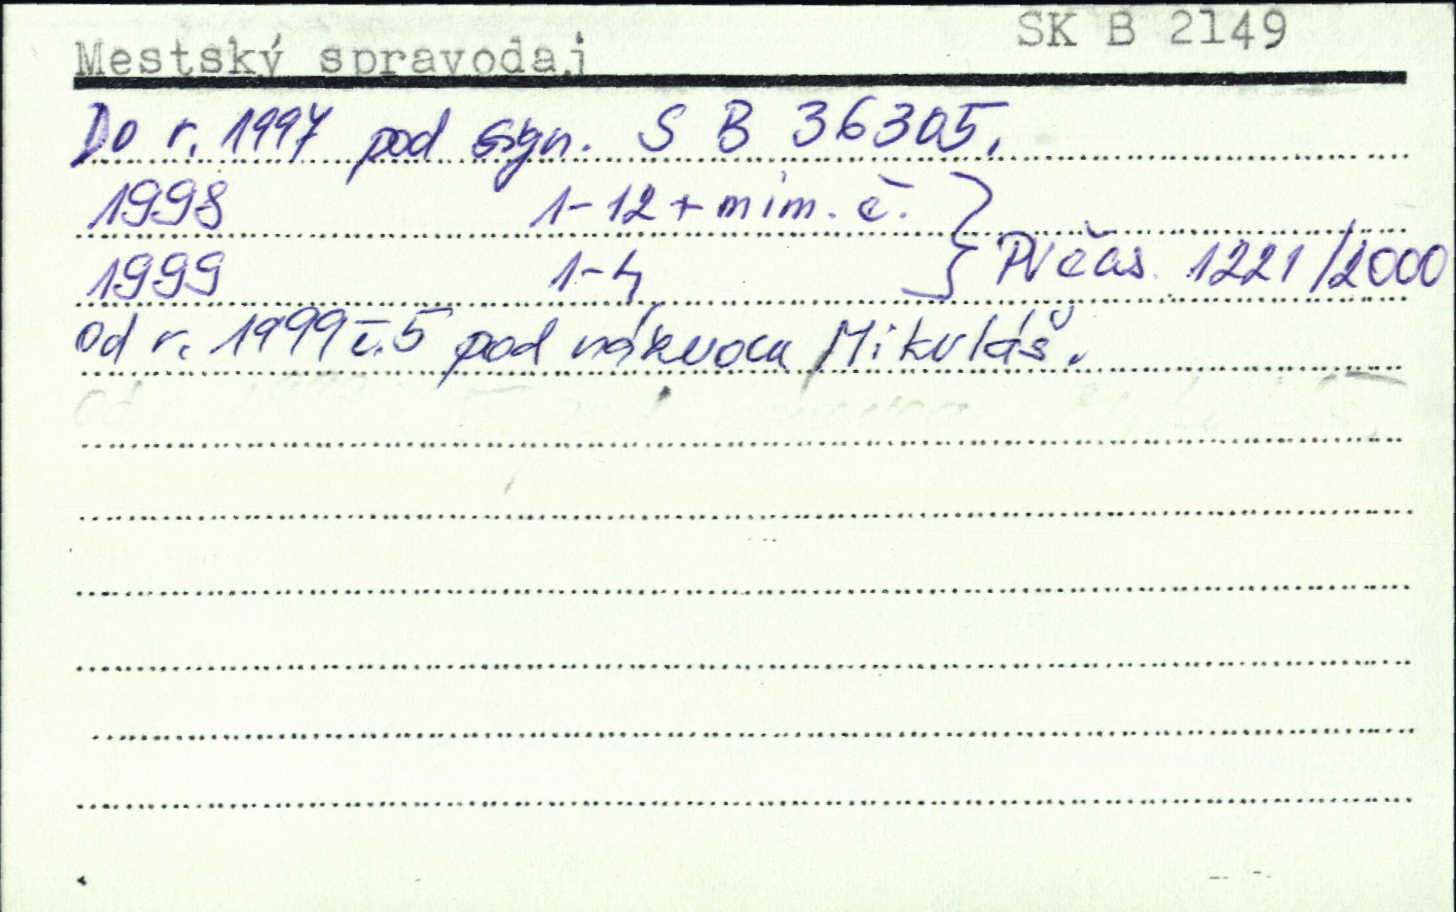 SK B 2149
Mestský spravodaj
Do r. 1997 pod sign. S B 36305.
1998 1-12 + mim. č.
1999 1-4 } PV čas. 1221/2000
od r. 1999 č. 5 pod názvom Mikuláš.